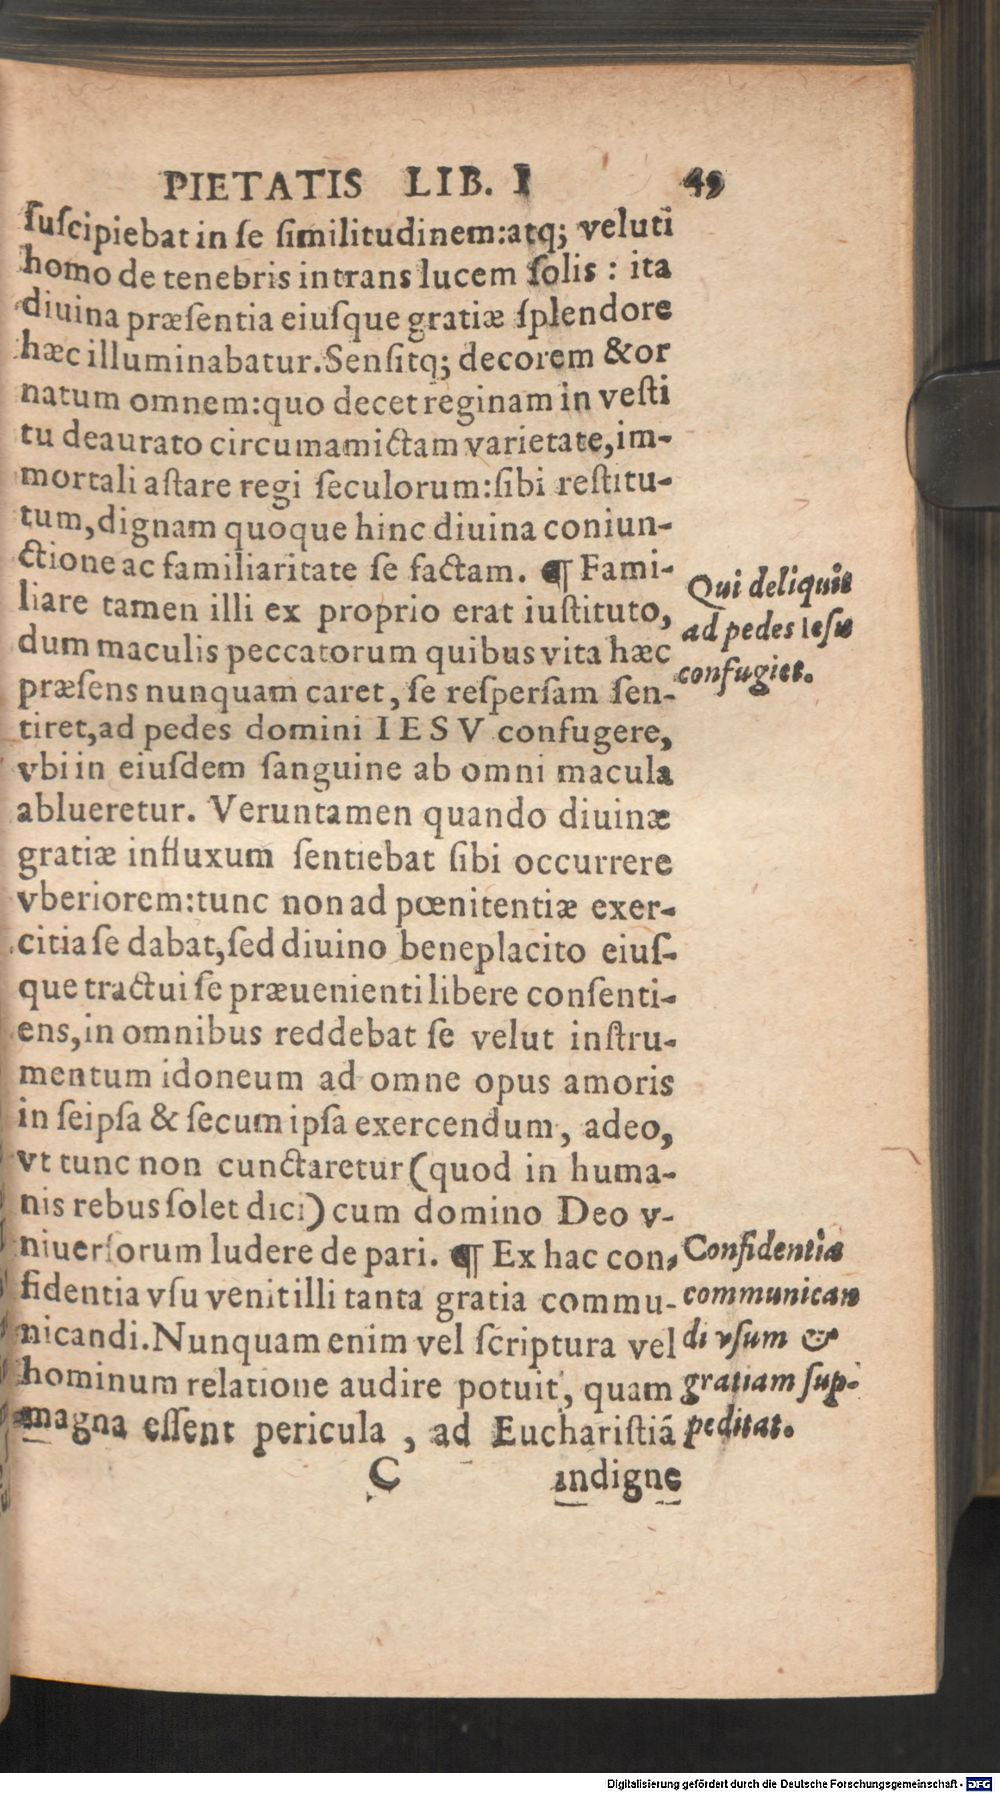 PIETATIS LIB. I 49
ſuſcipiebat in ſe ſimilitudinem:atq; veluti
homo de tenebris intrans lucem ſolis : ita
diuina præſentia eiuſque gratiæ ſplendore
hæc illuminabatur. Senſitq; decorem & or
natum omnem: quo decet reginam in veſti
tu deaurato circumamictam varietate, im-
mortali aſtare regi ſeculorum: ſibi reſtitu-
tum, dignam quoque hinc diuina coniun-
ctione ac familiaritate ſe factam. ¶ Fami-
liare tamen illi ex proprio erat iuſtituto,
dum maculis peccatorum quibus vita hæc
præſens nunquam caret, ſe reſperſam ſen-
tiret, ad pedes domini IESV confugere,
vbi in eiuſdem ſanguine ab omni macula
ablueretur. Veruntamen quando diuinæ
gratiæ influxum ſentiebat ſibi occurrere
vberiorem: tunc non ad pœnitentiæ exer-
citia ſe dabat, ſed diuino beneplacito eiuſ-
que tractui ſe præuenienti libere conſenti-
ens, in omnibus reddebat ſe velut inſtru-
mentum idoneum ad omne opus amoris
in ſeipſa & ſecum ipſa exercendum, adeo,
vt tunc non cunctaretur (quod in huma-
nis rebus ſolet dici) cum domino Deo v-
niuerſorum ludere de pari. ¶ Ex hac con-
fidentia vſu venit illi tanta gratia commu-
nicandi. Nunquam enim vel ſcriptura vel
hominum relatione audire potuit, quam
magna eſſent pericula, ad Euchariſtiã
C indigne
Qui deliquis
ad pedes Ieſu
confugiet.
Confidentia
communican
di vſum &
gratiam ſup-
peditat.
Digitalisierung gefördert durch die Deutsche Forschungsgemeinschaft - DFG